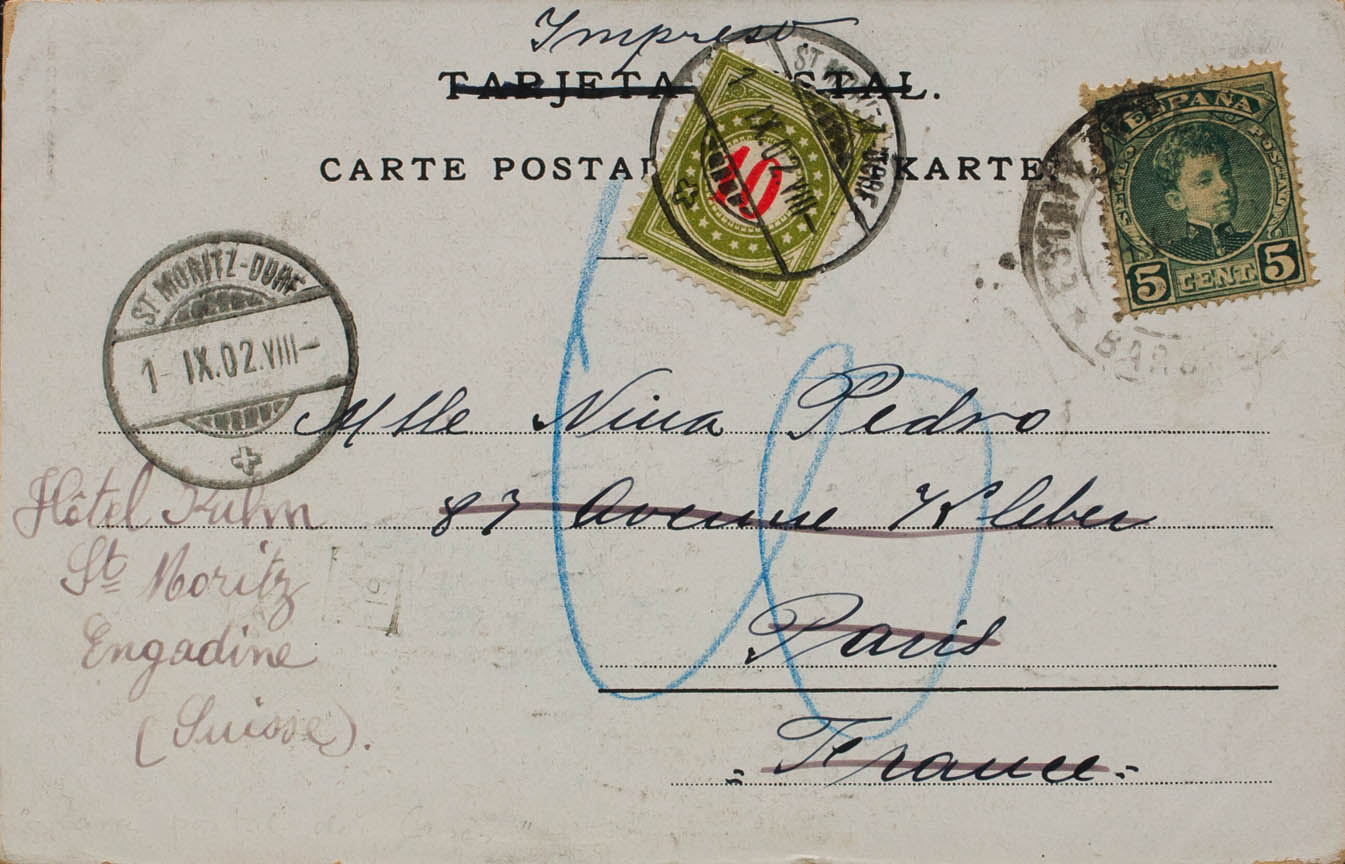 Impreso
TARJETA POSTAL.
CARTE POSTALE KARTE.
ESPAÑA
SELLO POSTAL
5 CENT. 5
10
ST MORITZ-DORF
1 IX.02.VIII-
ST MORITZ-DORF
1- IX.02.VIII-
Mlle Nina Pedro
87 Avenue Kleber
Paris
France
Hôtel Kulm
St Moritz
Engadine
(Suisse).